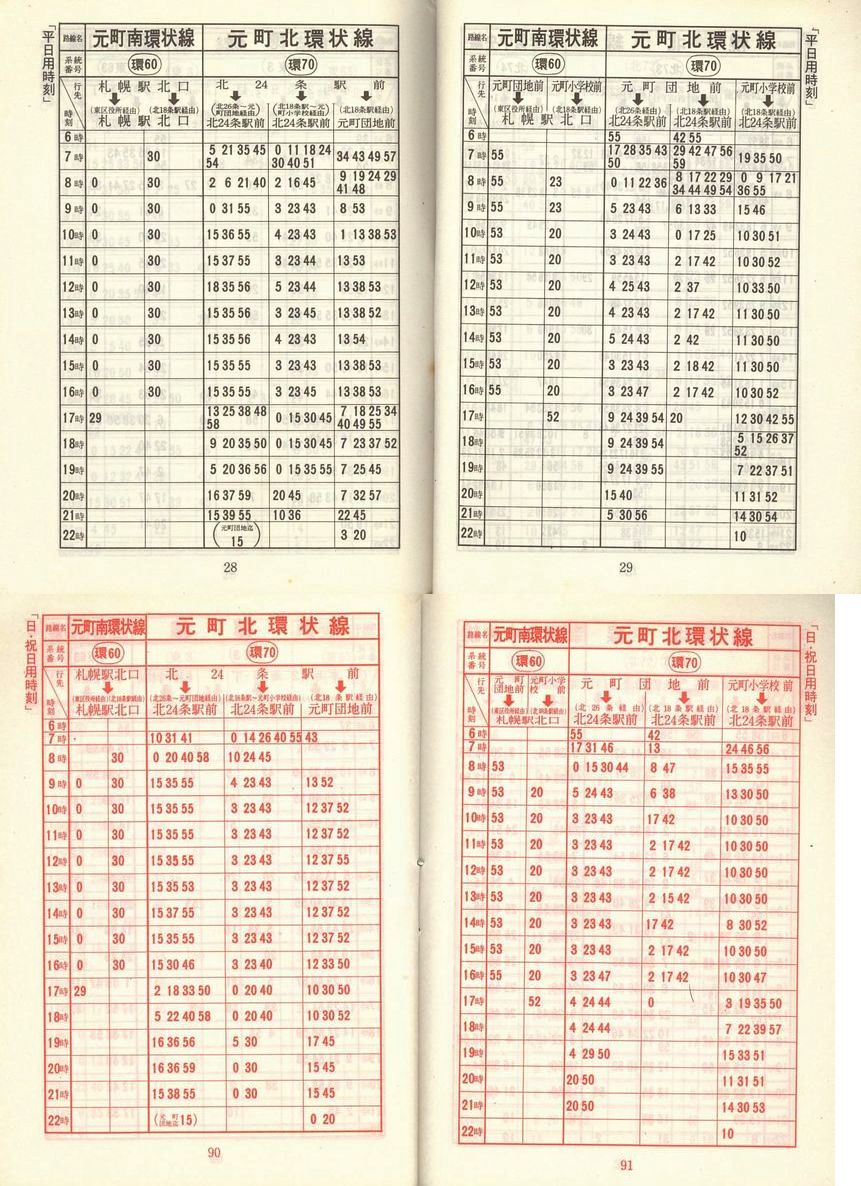 「平日用時刻」
路線名 元町南環状線 元町北環状線
系統番号 環60 環70
行先 札幌駅北口 北24条駅前
時刻 (東区役所経由) (北18条駅経由) (北26条~元町団地経由) (北18条駅~元町小学校経由) (北18条駅経由)
札幌駅北口 北24条駅前 北24条駅前 元町団地前
6時
7時 30 5 21 35 45 54 0 11 18 24 30 40 51 34 43 49 57
8時 0 30 2 6 21 40 2 16 45 9 19 24 29 41 48
9時 0 30 0 31 55 3 23 43 8 53
10時 0 30 15 36 55 4 23 43 1 13 38 53
11時 0 30 15 37 55 3 23 44 13 53
12時 0 30 18 35 56 5 23 44 13 38 53
13時 0 30 15 35 56 3 23 45 13 38 52
14時 0 30 15 35 56 4 23 43 13 54
15時 0 30 15 35 55 3 23 43 13 38 53
16時 0 30 15 35 55 3 23 45 13 38 53
17時 29 13 25 38 48 58 0 15 30 45 7 18 25 34 40 49 55
18時 9 20 35 50 0 15 30 45 7 23 37 52
19時 5 20 36 56 0 15 35 55 7 25 45
20時 16 37 59 20 45 7 32 57
21時 15 39 55 10 36 22 45
22時 (元町団地迄 15) 3 20
28
「平日用時刻」
路線名 元町南環状線 元町北環状線
系統番号 環60 環70
行先 元町団地前 元町小学校前 元町団地前 元町小学校前
時刻 (東区役所経由) (北18条駅経由) (北26条経由) (北18条駅経由) (北18条駅経由)
札幌駅北口 北24条駅前 北24条駅前 北24条駅前
6時 55 42 55
7時 55 17 28 35 43 50 29 42 47 56 59 19 35 50
8時 55 23 0 11 22 36 8 17 22 29 34 44 49 54 0 9 17 21 36 55
9時 55 23 5 23 43 6 13 33 15 46
10時 53 20 3 24 43 0 17 25 10 30 51
11時 53 20 3 23 43 2 17 42 10 30 52
12時 53 20 4 25 43 2 37 10 33 50
13時 53 20 4 23 43 2 17 42 11 30 50
14時 53 20 5 24 43 2 42 11 30 50
15時 53 20 3 23 43 2 18 42 11 30 50
16時 55 20 3 23 47 2 17 42 10 30 52
17時 52 9 24 39 54 20 12 30 42 55
18時 9 24 39 54 5 15 26 37 52
19時 9 24 39 55 7 22 37 51
20時 15 40 11 31 52
21時 5 30 56 14 30 54
22時 10
29
「日・祝日用時刻」
路線名 元町南環状線 元町北環状線
系統番号 環60 環70
行先 札幌駅北口 北24条駅前
時刻 (東区役所経由) (北18条駅経由) (北26条~元町団地経由) (北18条駅~元町小学校経由) (北18条駅経由)
札幌駅北口 北24条駅前 北24条駅前 元町団地前
6時
7時 10 31 41 0 14 26 40 55 43
8時 30 0 20 40 58 10 24 45
9時 0 30 15 35 55 4 23 43 13 52
10時 0 30 15 35 55 3 23 43 12 37 52
11時 0 30 15 35 55 3 23 43 12 37 52
12時 0 30 15 35 55 3 23 43 12 37 55
13時 0 30 15 35 53 3 23 43 12 37 52
14時 0 30 15 37 55 3 23 43 12 37 52
15時 0 30 15 35 55 3 23 43 12 37 52
16時 0 30 15 30 46 3 23 40 12 33 50
17時 29 2 18 33 50 0 20 40 10 30 50
18時 5 22 40 58 0 20 40 10 30 52
19時 16 36 56 5 30 17 45
20時 16 36 59 0 30 15 45
21時 15 38 55 0 30 15 45
22時 (元町団地迄 15) 0 20
90
「日・祝日用時刻」
路線名 元町南環状線 元町北環状線
系統番号 環60 環70
行先 元町団地前 元町小学校前 元町団地前 元町小学校前
時刻 (東区役所経由) (北18条経由) (北26条経由) (北18条駅経由) (北18条駅経由)
札幌駅北口 北24条駅前 北24条駅前 北24条駅前
6時 55 42
7時 17 31 46 13 24 46 56
8時 53 0 15 30 44 8 47 15 35 55
9時 53 20 5 24 43 6 38 13 30 50
10時 53 20 3 23 43 17 42 10 30 50
11時 53 20 3 23 43 2 17 42 10 30 50
12時 53 20 3 23 43 2 17 42 10 30 50
13時 53 20 3 23 43 2 15 42 10 30 50
14時 53 20 3 23 43 17 42 8 30 52
15時 53 20 3 23 43 2 17 42 10 30 50
16時 55 20 3 23 47 2 17 42 10 30 47
17時 52 4 24 44 0 3 19 35 50
18時 4 24 44 7 22 39 57
19時 4 29 50 15 33 51
20時 20 50 11 31 51
21時 20 50 14 30 53
22時 10
91